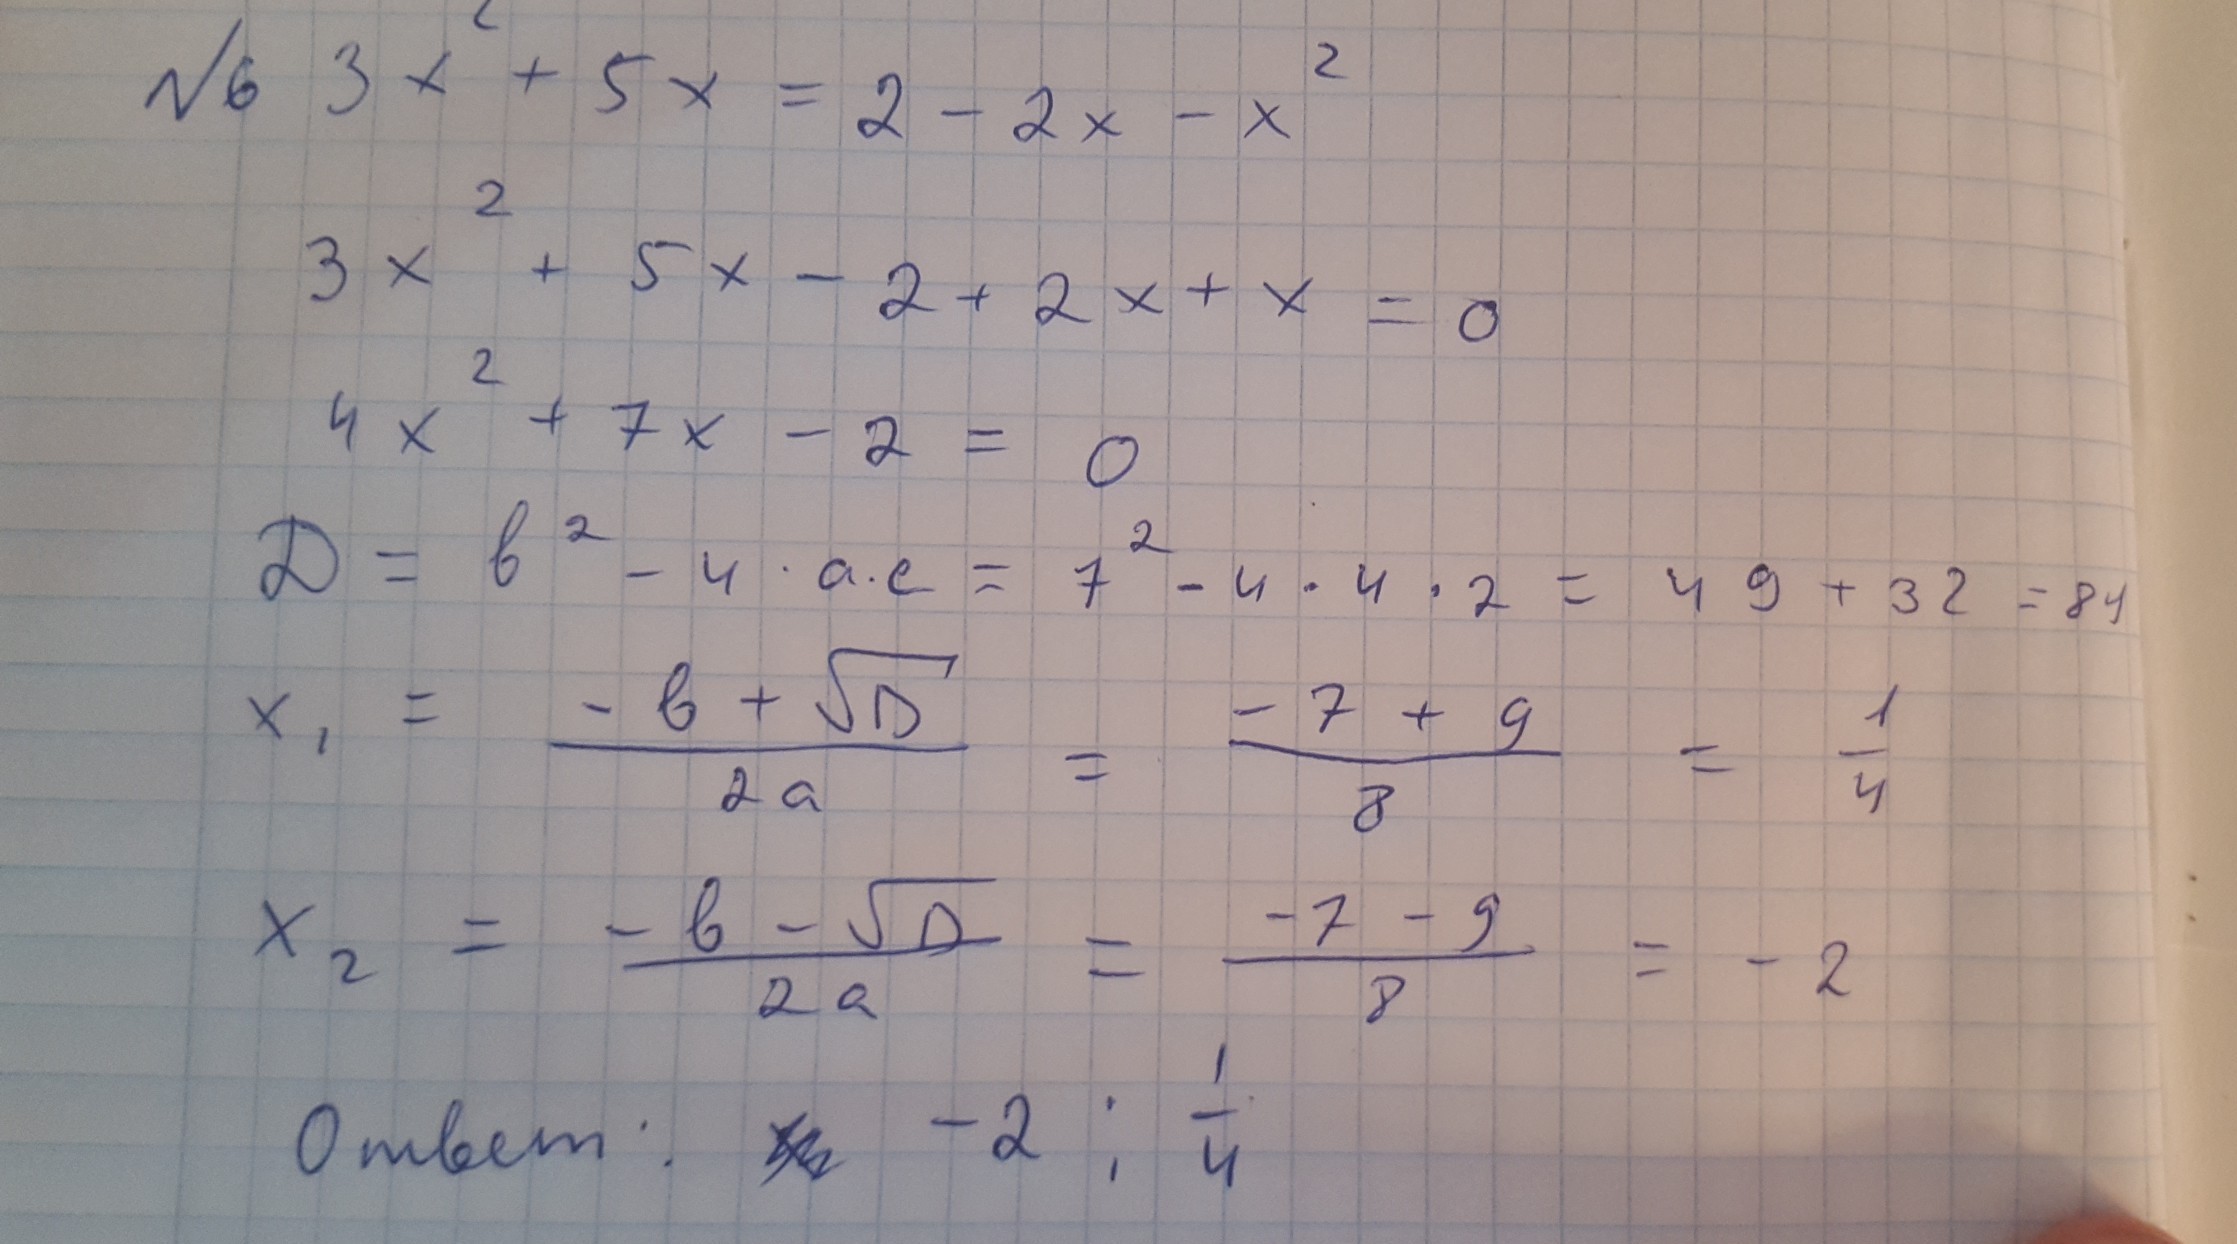 №6 3x² + 5x = 2 - 2x - x²
3x² + 5x - 2 + 2x + x = 0
4x² + 7x - 2 = 0
D = b² - 4 · a · c = 7² - 4 · 4 · 2 = 49 + 32 = 81
x₁ = (-b + √D)/2a = (-7 + 9)/8 = 1/4
x₂ = (-b - √D)/2a = (-7 - 9)/8 = -2
Ответ: -2 ; 1/4